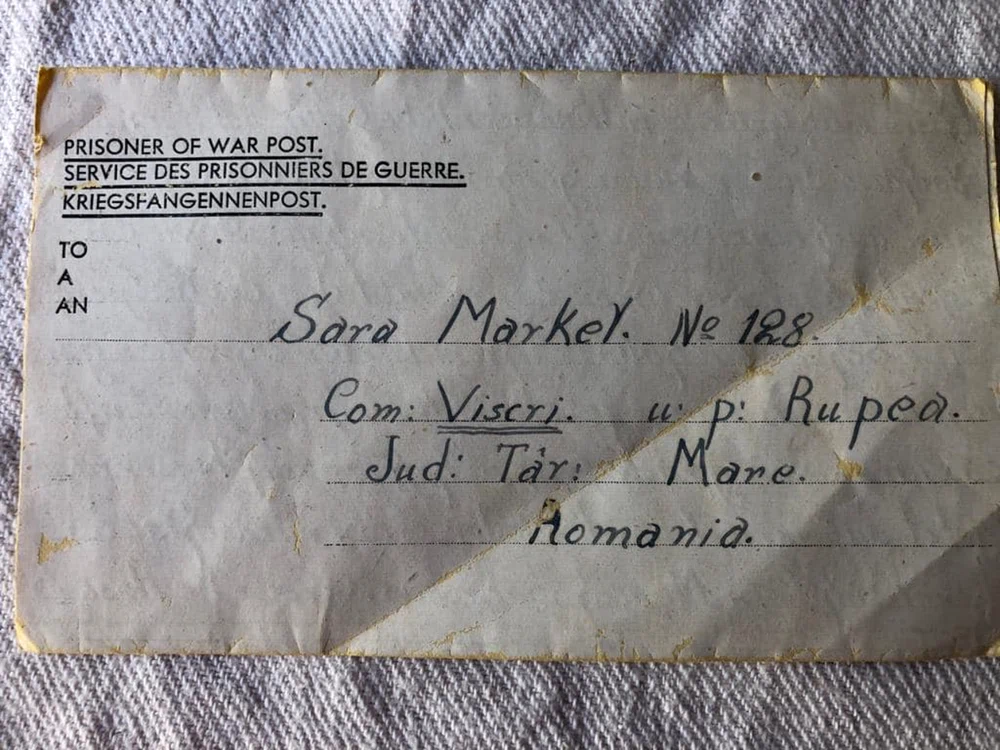 PRISONER OF WAR POST.
SERVICE DES PRISONNIERS DE GUERRE.
KRIEGSFANGENNENPOST.
TO
A
AN
Sara Markel. No 128.
Com: Viscri. u. p: Rupea.
Jud: Târ: Mare.
Romania.